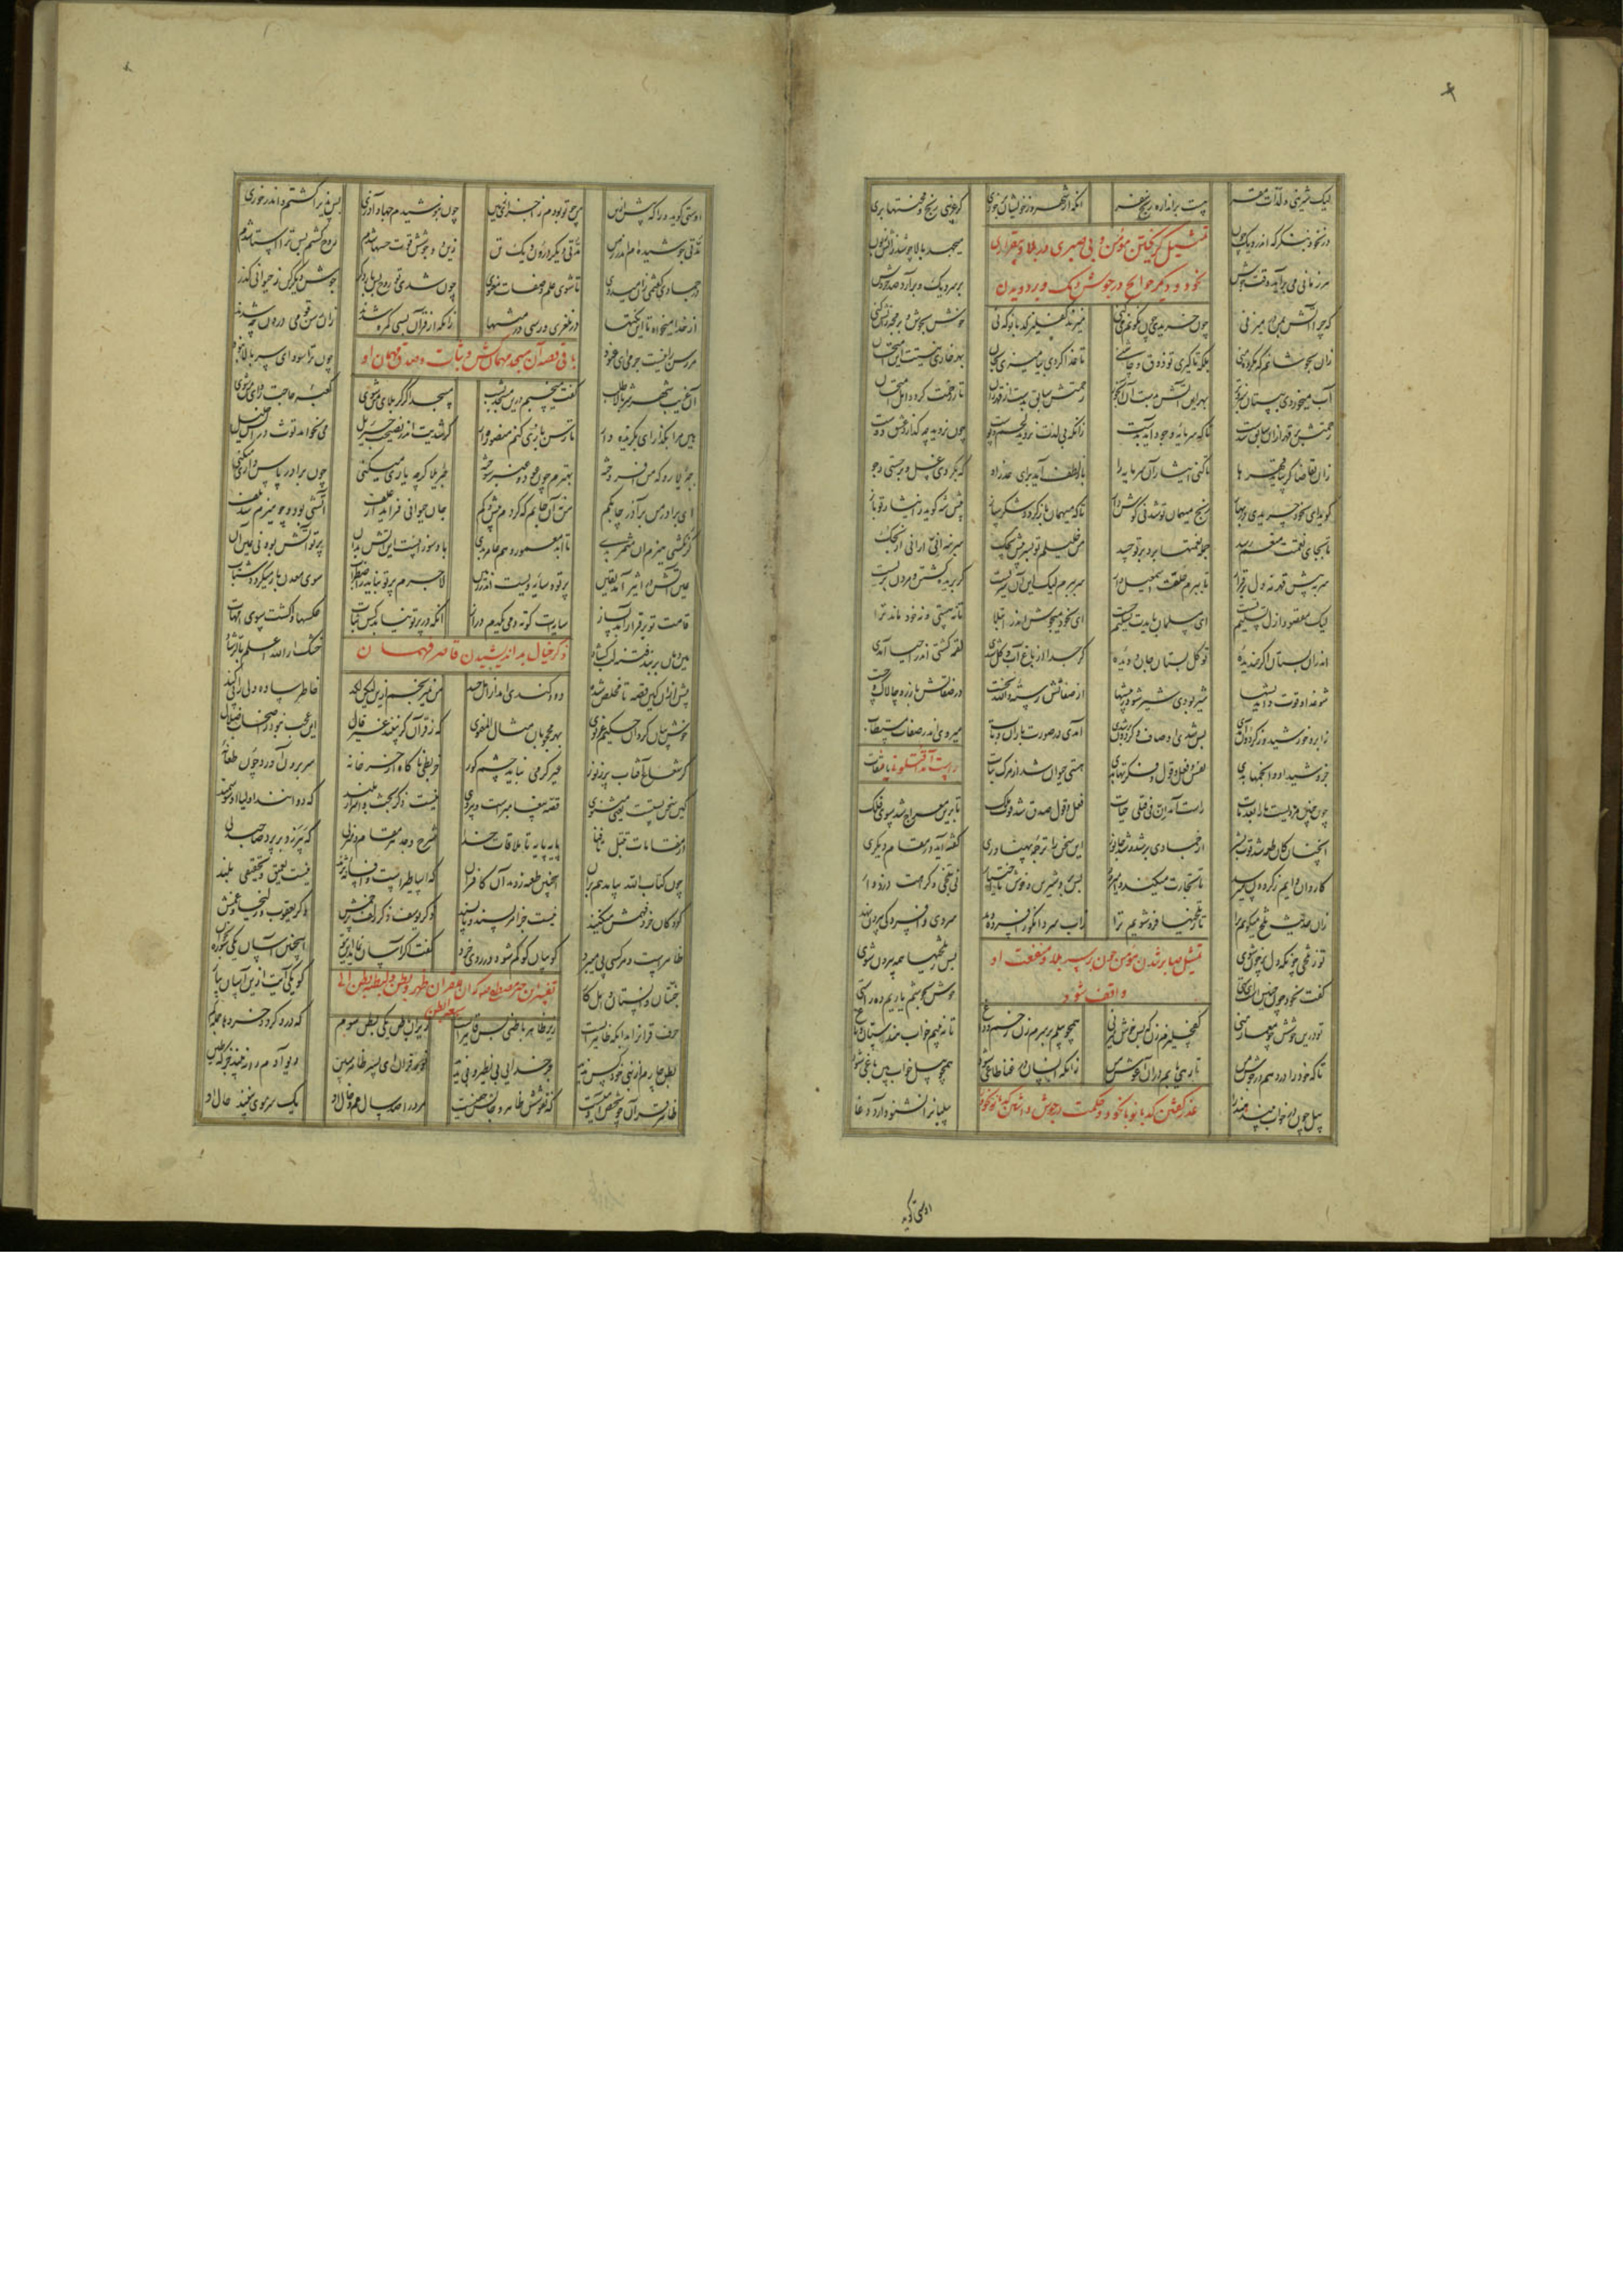 لیک شیرینی و لذات مقر هست بر اندازه رنج سفر آنگه از شهر و ز خویشان برخوری کز غریبی رنج و محنتها بری
تمثیل گریختن مؤمن و بی صبری در بلا و بیقراری
نخود و دیگر حوایج در جوش دیک و بر دویدن
در نخود بنگر که اندر دیک چون میجهد بالا چو شد ز آتش زبون
هر زمانی می برآید وقت جوش بر سر دیک و برآرد صد خروش
که چرا آتش بمن در میزنی چون خریدی چون نگونم میکنی میزند کفلیز کدبانو که نی خوش بجوش و بر مجه ز آتش کنی
زان نجوشانم که مکروه منی بلکه تا گیری تو ذوق و چاشنی تا غذا گردی بیامیزی بجان بهر خواری نیستت این امتحان
آب میخوردی ببستان سبز و تر بهر این آتش بدست آن آبخور رحمتش سابق بدست از قهر زان تا ز رحمت گردد اهل امتحان
رحمتش بر قهر ازان سابق شدست تا که سرمایه وجود آید بدست زانکه بی لذت نروید لحم و پوست چون نروید چه گدازد عشق دوست
زان تقاضا گر بیاید قهرها تا کنی ایثار آن سرمایه را باز لطف آید برای عذر او که بکردی غسل و بر جستی ز جو
گوید ای نخود چریدی در بهار رنج مهمان تو شد نیکوش دار تا که میهمان باز گردد شکر ساز پیش شه گوید ز ایثار تو باز
تا بجای نعمتت منعم رسد جمله نعمتها برد بر تو حسد من خلیلم تو پسر پیش بچک سر بنه انی ارانی اذبحک
سر به پیش قهر نه دل بر قرار تا ببرم حلقت اسمعیل وار سر ببرم لیک این سر آن سریست کز بریده گشتن و مردن بریست
لیک مقصود ازل تسلیم تست ای مسلمان بایدت تسلیم جست ای نخود میجوش اندر ابتلا تا نه هستی و نه خود ماند ترا
اندران بستان اگر خندیده تو گل بستان جان و دیده گر جدا از باغ آب و گل شدی لقمه گشتی اندر احیا آمدی
شو غذا و قوت و اندیشها شیر بودی شیر شو در بیشها از صفاتش رسته والله نخست در صفاتش باز رو چالاک و چست
ز ابر و خورشید و ز گردون آمدی پس شدی اوصاف و گردون بر شدی آمدی در صورت باران و تاب میروی اندر صفات مستطاب
جزو شید و ابر و انجمها بدی نفس و فعل و قول و فکرتها شدی هستی حیوان شد از مرگ نبات راست آمد اقتلونی یا ثقات
چون چنین بردیست ما را بعد مات راست آمد ان فی قتلی حیات فعل و قول صدق شد قوت ملک تا بدین معراج شد سوی فلک
آنچنان کان طعمه شد قوت بشر از جمادی بر شد و شد جانور این سخن را ترجمه پهناوری گفته آید در مقام دیگری
کاروان دایم ز گردون میرسد تا تجارت میکنند و میرود پس برو شیرین و خوش با اختیار نی بتلخی و کراهت دزدوار
زان حدیث تلخ میگویم ترا تا ز تلخیها فرو شویم ترا ز آب سرد انگور افسرده رهد سردی و افسردگی بیرون نهد
تو ز تلخی چونکه دل پر خون شوی پس ز تلخیها همه بیرون شوی
تمثیل صابر شدن مؤمن چون بر سر بلا و منفعت او
واقف شود
گفت نخود چون چنین است ای ستی خوش بجوشم یاریم ده راستی
تو درین جوشش چو معمار منی کفچلیزم زن که بس خوش میزنی همچو پیلم بر سرم زن زخم و داغ تا نبینم خواب هندستان و باغ
تا که خود را در دهم در جوش من تا رهی یابم در آن آغوش من زانکه انسان در غنا طاغی شود همچو پیل خواب بین باغی شود
پیل چون در خواب بیند هند را پیلبان را نشنود آرد دغا
عذر گفتن کدبانو با نخود و حکمت در جوش داشتن کدبانو نخود
آن ستی گوید
آن ستی گوید ورا که پیش ازین من چو تو بودم ز اجزای زمین چون بنوشیدم جهاد آذری پس پذیرا گشتم و اندر خوری
مدتی جوشیده‌ام اندر زمن مدتی دیگر درون دیک تن زین دو جوشش قوت حسها شدم روح گشتم پس ترا استا شدم
در جمادی گفتمی زان میدوی تا شوی علم و صفات معنوی چون شدی تو روح پس بار دگر جوش دیگر کن ز حیوانی گذر
از خدا میخواه تا زین نکتها در نلغزی و رسی در منتها زانکه از قرآن بسی گمره شدند زان رسن قومی درون چه شدند
مر رسن را نیست جرمی ای عنود چون ترا سودای سر بالا نبود
باقی قصه آن مسجد مهمان کش و ثبات و صدق مهمان او
آن غریب شهر سر بالا طلب گفت میخسپم درین مسجد بشب مسجدا گر کربلای من شوی کعبه حاجت روای من شوی
هین مرا بگذار ای بگزیده دار تا رسن بازی کنم منصور وار گر شدیت اندر نصیحت جبرئیل می نخواهد غوث در آتش خلیل
جبرئیلا رو که من افروخته بهترم چون عود و عنبر سوخته جبرئیلا گرچه یاری میکنی چون برادر پاس داری میکنی
ای برادر من بر آذر چابکم من نه آن جانم که گردم بیش و کم جان حیوانی فزاید از علف آتشی بود و چو هیزم شد تلف
گر نگشتی هیزم آن مثمر بدی تا ابد معمور و هم عامر بدی باد سوزانست این آتش بدان پرتو آتش بود نی عین آن
عین آتش در اثیر آمد یقین پرتو و سایه ویست اندر زمین لاجرم پرتو نپاید ز اضطراب سوی معدن باز میگردد شتاب
قامت تو بر قرار آمد بساز سایه‌ات کوته دمی یکدم دراز زانکه در پرتو نیابد کس ثبات عکسها وا گشت سوی امهات
هین دهان بر بند فتنه لب گشاد خشک آر الله اعلم بالرشاد
ذکر خیال بد اندیشیدن قاصر فهمان
پیش ازان کین قصه تا مخلص رسد دود گندی آمد از اهل حسد من نمیرنجم ازین لیک این لگد خاطر ساده دلی را پی کند
خوش بیان کرد آن حکیم غزنوی بهر محجوبان مثال معنوی که ز قرآن گر نبیند غیر قال این عجب نبود ز اصحاب ضلال
کز شعاع آفتاب پر ز نور غیر گرمی می نیابد چشم کور خربطی ناگاه از خر خانه سر برون آورد چون طعانه
کین سخن پستست یعنی مثنوی قصه پیغامبرست و پیروی نیست ذکر بحث و اسرار بلند که دوانند اولیا آن سو سمند
از مقامات تبتل تا فنا پایه پایه تا ملاقات خدا شرح و حد هر مقام و منزلی که بپر زو بر پرد صاحب دلی
چون کتاب الله بیامد هم بران اینچنین طعنه زدند آن کافران که اساطیرست و افسانه نژند نیست تعمیق و تحقیقی بلند
کودکان خرد فهمش میکنند نیست جز امر پسند و ناپسند ذکر یوسف ذکر زلف پر خمش ذکر یعقوب و زلیخا و غمش
ظاهرست و هر کسی پی میبرد کو بیان که گم شود در وی خرد گفت اگر آسان نماید این بتو اینچنین آسان یکی سوره بگو
جنتان و انستان و اهل کار گو یکی آیت ازین آسان بیار
تفسیر این خبر مصطفی که ان للقرآن ظهر و بطن و لبطنه بطن الی
سبعة ابطن
حرف قرآن را بدان که ظاهریست زیر ظاهر باطنی بس قاهریست زیر آن باطن یکی بطن سوم که درو گردد خردها جمله گم
بطن چارم از نبی خود کس ندید جز خدای بی نظیر بی ندید تو ز قرآن ای پسر ظاهر مبین دیو آدم را نبیند جز که طین
ظاهر قرآن چو شخص آدمیست که نقوشش ظاهر و جانش خفیست مرد را صد سال عم و خال او یک سر موی نبیند حال او